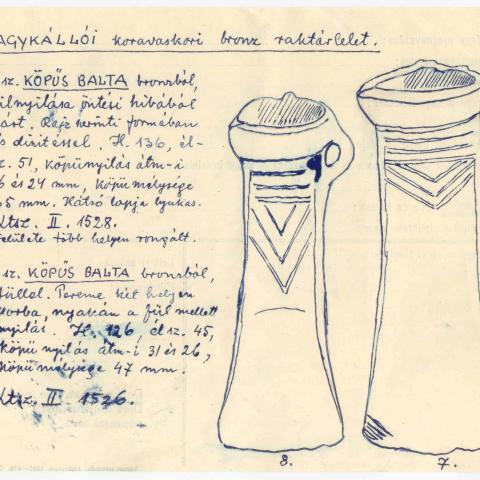 AGYKÁLLÓI koravaskori bronz raktárlelet.
sz. KÖPŰS BALTA bronzból,
ilnyitása öntési hibából
árt. Rajz szerinti formában
s díszítéssel. H. 136, él-
z. 51, köpűnyilás átm-i
6 és 24 mm, köpű mélysége
5 mm. Hátsó lapja lyukas.
Ltsz. II. 1528.
Felülete több helyen rongált.
sz. KÖPŰS BALTA bronzból,
füllel. Pereme két helyen
sorba, nyakán a fül mellett
nyilás. H. 126, él sz. 45,
köpű nyilás átm-i 31 és 26,
köpű mélysége 47 mm.
Ltsz. II. 1526.
8.
7.